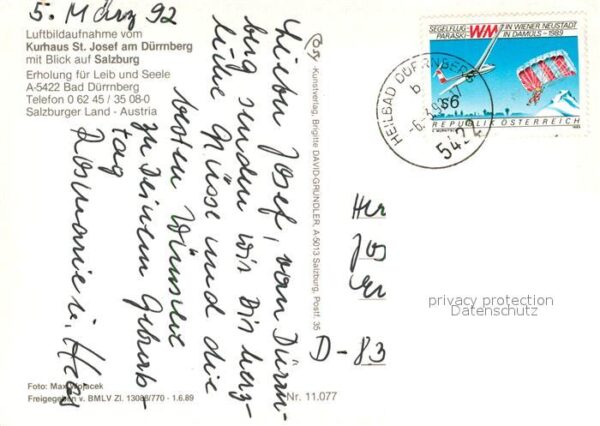 5. März 92
Luftbildaufnahme vom
Kurhaus St. Josef am Dürrnberg
mit Blick auf Salzburg
Erholung für Leib und Seele
A-5422 Bad Dürrnberg
Telefon 0 62 45 / 35 08-0
Salzburger Land - Austria
Lieber Josef, vom Dürrn-
berg senden wir Dir herz-
liche Grüsse und die
besten Wünsche
zu Deinem Geburts-
tag
Rosmarie u. Hans
Kunstverlag, Brigitte DAVID-GRUNDLER, A-5013 Salzburg, Postf. 35
SEGELFLUG- WM IN WIENER NEUSTADT
PARASKI- IN DAMÜLS - 1989
S6
REPUBLIK ÖSTERREICH
HEILBAD DÜRRNBERG
b
5422
Her
Jos
D-83
privacy protection
Datenschutz
Foto: Max Wojacek
Freigegeben v. BMLV Zl. 13088/770 - 1.6.89
Nr. 11.077